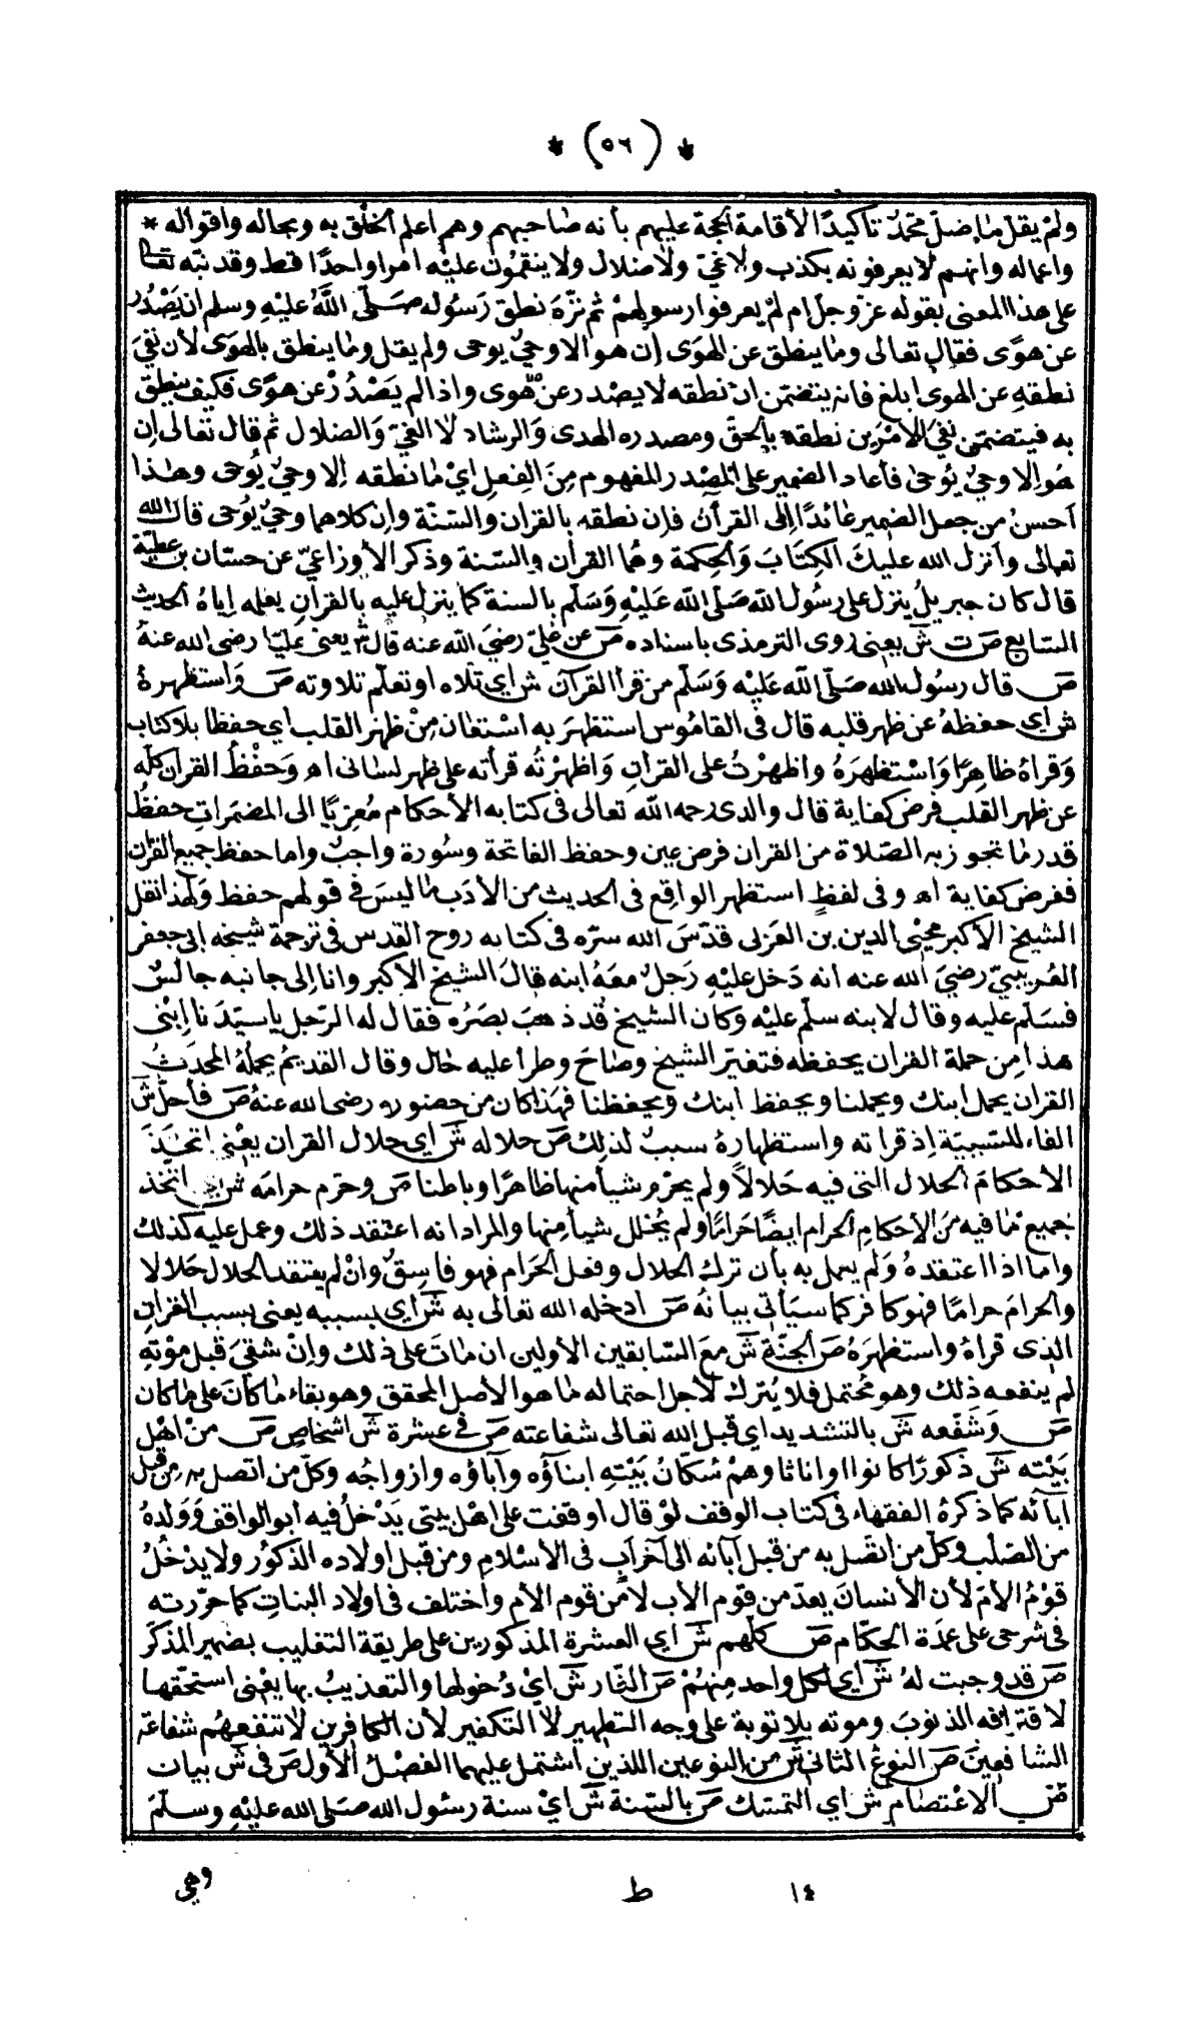 * (٥٦) *
ولم يقل ما ضل محمد تأكيدًا لأقامة الحجة عليهم بأنه صاحبهم وهم اعلم الخلق به وبحاله واقواله *
واعماله وانهم لا يعرفونه بكذب ولا غيّ ولا ضلال ولا ينقمون عليه امرا واحدًا قط وقد نبّه تعالى
على هذا المعنى بقوله عزّ وجل ام لم يعرفوا رسولهم ثم نزّه نطق رَسُوله صَلّى اللّٰهُ عليْهِ وسلم ان يَصْدُر
عن هوًى فقال تعالى وما ينطق عن الهوَى إن هو الا وحيٌ يوحى ولم يقل وما ينطق بالهوَى لأن نفيَ
نطقهِ عن الهوى ابلغ فانه يتضمن ان نطقه لا يصدر عن هوى واذا لم يَصْدُرْ عن هوًى فكيف ينطق
به فيتضمّن نفيَ الأمرَين نطقه بالحقّ ومصدره الهدى وَالرشاد لا الغيّ وَالضلال ثم قال تعالى إن
هُو إلا وحيٌ يُوحى فأعاد الضمير على المصْدر المفهوم مِنَ الفِعل ايْ مَا نطقه إلا وحيٌ يُوحَى وهٰذا
اَحسنُ من جعل الضمير عَائدًا إلى القرآن فإن نطقه بالقران والسّنّة وإن كلاهما وحيٌ يُوحَى قال الله
تعالى وَأنزل الله عليكَ الكِتَابَ وَالحِكمة وهُما القرآن والسّنة وذكر الأوزاعيّ عن حسّان بن عطيّة
قال كان جبريلُ ينزل على رسُول اللّٰه صَلّى اللّٰه عَليْهِ وَسَلّم بالسنة كما ينزل عليه بالقرآنِ يعلمه إياهُ الحديث
السّابع ص ت ش يعني روى الترمذى باسناده ص عن عليّ رضيَ اللّٰه عنه قال ش يعنى عليّا رضى الله عنهُ
ص قال رسُول الله صَلّى اللّٰه عَليْه وَسَلّم من قرأ القرآن ش اي تلاه او تعلّم تلاوته ص وَاستظهرهُ
ش اي حفظهُ عن ظهر قلبه قال فى القامُوس استظهرَ به اسْتعَان مِنْ ظهر القلب اي حفظا بلا كتاب
وَقراهُ ظاهِرًا وَاسْتظهَرَهُ واظهرْتُ على القرآنِ وَاظهرْتُه قرأته على ظهر لسَانى اﻫ وَحفْظُ القران كلّه
عن ظهر القلب فرض كفاية قال والدى رحمه اللّٰه تعالى فى كتابه الأحكام مُعزيًا الى المضمَراتِ حفظُ
قدر مَا تجوز به الصّلاة من القران فرض عين وحفظ الفاتحة وسُورة واجبٌ واما حفظ جميع القرآن
ففرض كفاية اﻫ وفى لفظِ استظهر الواقِع فى الحديث من الأدَب مَا ليسَ فى قولهم حفظ وَلهذا نقل
الشيخ الأكبر محيى الدين بن العربى قدّسَ اللّٰه سرّه فى كتابه روح القدس فى ترجمة شيخه ابى جعفر
العُريبيّ رضيَ اللّٰه عنه انه دَخل عليْهِ رَجلٌ معَهُ ابنه قال الشيخ الأكبر وانا إلى جانبه جالسٌ
فسَلّم عليه وقال لابنه سلّم عليْه وكان الشيخ قد ذهبَ بصَرُه فقال له الرّجل يا سيّدَنا إبْنى
هذا مِن حملة القران يحفظه فتغيّر الشيخ وصَاحَ وطرأ عليه حَال وقال القديمُ يحملهُ المحدَثُ
القران يحمل ابنك ويحملنا ويحفظ ابنك ويحفظنا فهٰذا كان من حضوره رضى الله عنهُ ص فأحلّ ش
الفاء للسّببيّة إذ قراته واستظهارهُ سببٌ لذلك ص حلاله ش اي حلال القران يعْني اتخَذَ
الأحكامَ الحلال التى فيه حَلالاً ولم يحرّم شيأ منها ظاهرًا وباطنا ص وحرّم حرامَه ش اتخذ
جميعَ مَا فيه مِن الأحكامِ الحرام ايضًا حَرامًا ولم يُحلل شيأ منها والمراد انه اعتقد ذلك وعمل عليه كذلك
واما اذا اعتقدهُ وَلم يعمل به بأن ترك الحلال وفعل الحَرام فهو فاسِقٌ وانْ لم يعتقد الحلال حلالا
والحرامَ حرامًا فهو كافر كما سيَأتي بيانُه ص ادخله الله تعالى به ش اي بسببه يعنى بسبب القران
الذى قراهُ واستظهرَهُ ص الجنّة ش معَ السّابقين الأولين ان مَاتَ على ذلك وإنْ شقيَ قبل موْتهِ
لم ينفعه ذلك وهو محُتمل فلا يُترك لأجل احتماله مَا هو الأصل المحقق وهو بقاء مَا كانَ على مَا كان
ص وَشفّعه ش بالتشديد اي قبل الله تعالى شفاعته ص فى عشرة ش اشخاصٍ ص من اهْل
بَيْته ش ذكورًا كانوا او اناثا وهمْ سُكّانُ بَيْتهِ ابناؤه وآباؤه وازواجُه وكلّ من اتصل به مِن قِبل
آبآئه كما ذكرهُ الفقهاء فى كتاب الوقف لوْ قال اوقفت على اهْل بيتى يَدْخلُ فيه ابو الواقف وَوَلدهُ
من الصلْب وكلّ من اتصَل به من قبل آبائه الى آخر ابٍ فى الأسْلام ومن قبل اولاده الذكوُر ولا يدْخُلُ
قوْمُ الأمّ لأن الأنسانَ يعدّ من قوم الأب لا من قوم الأم واختلف فى اولاد البناتِ كما حرّرته
فى شرحى على عمدَة الحكّام ص كلهم ش اي العشرة المذكورين على طريقة التغليب بضمير المذكّر
ص قد وجبت لهُ ش اي لكل واحد منهُمْ ص النّار ش ايْ دُخولها والتعذيبُ بها يعْنى استحقها
لاقترافه الذنوبَ وموته بلا توبة على وجه التطهير لا التكفير لأن الكافرين لا تنفعهُم شفاعَة
الشافعينَ ص النوعُ الثانى ش من النوعين اللذين اشتمل عليهما الفصْلُ الأول ص فى ش بيان
ص الاعْتصَام ش اي التمسّك ص بالسّنة ش ايْ سنة رسُول الله صَلى الله عليْهِ وسلّمَ
وهي
ط
١٤